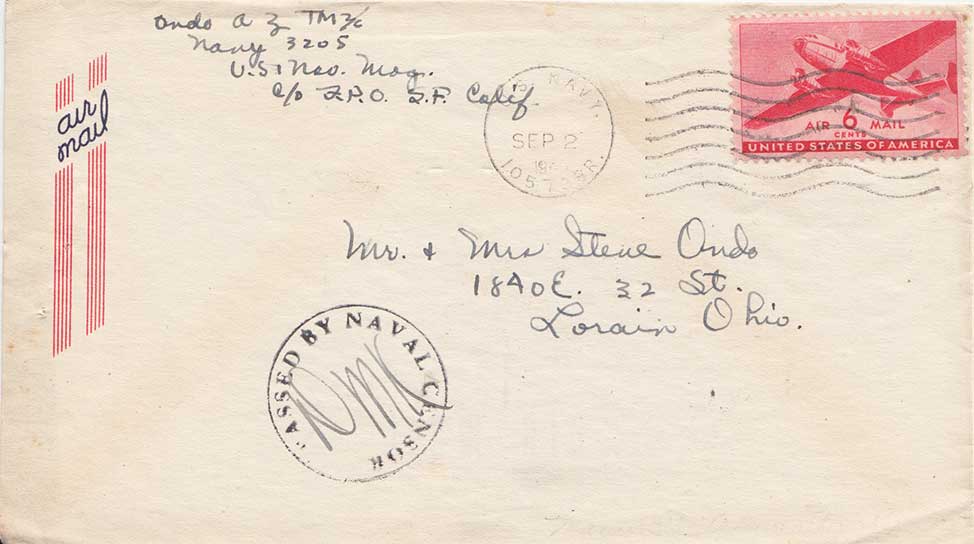 Ondo A Z TM2/c
Navy 3205
U.S. Nav. Mag.
c/o F.P.O. S.F. Calif.
air
mail
NAVY
SEP 2
10573 BR.
AIR 6 MAIL
CENTS
UNITED STATES OF AMERICA
Mr. & Mrs Steve Ondo
1840 E. 32 St.
Lorain Ohio.
PASSED BY NAVAL CENSOR